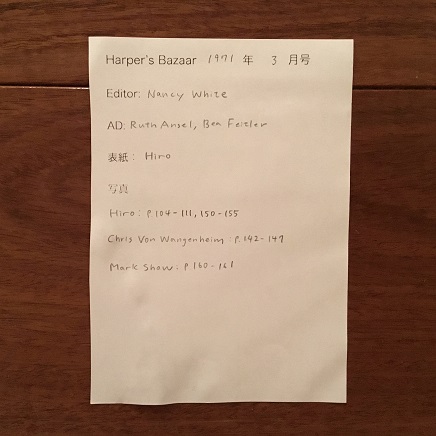 Harper's Bazaar 1971 年 3 月号
Editor: Nancy White
AD: Ruth Ansel, Bea Feitler
表紙： Hiro
写真
Hiro: P104-111, 150-155
Chris Von Wangenheim: P.142-147
Mark Shaw: P160-161